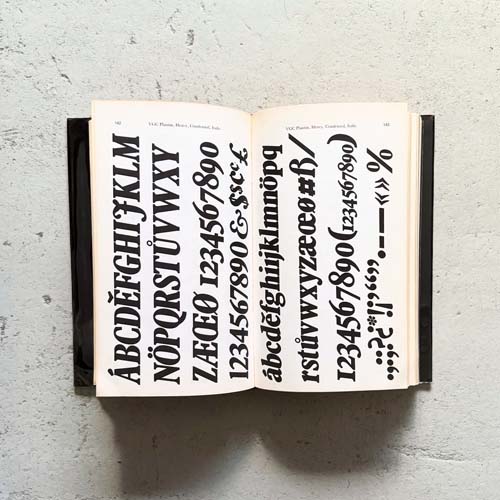 142
VGC Plantin, Heavy, Condensed, Italic
ÁBCDĚFGHIJKLM
NÖPQRSTŮVWXY
ZÆŒØ 1234567890
1234567890&$sc¢£
VGC Plantin, Heavy, Condensed, Italic
143
ábcděfghijklmnöpq
rstůvwxyzæœøıßʒ/
1234567890(1234567890)
%